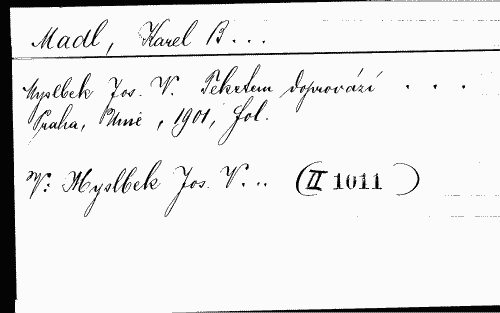 Madl, Karel B...
Myslbek Jos. V. Tekstem doprovází . . .
Praha, Unie, 1901, fol.
V: Myslbek Jos. V... (II 1011)